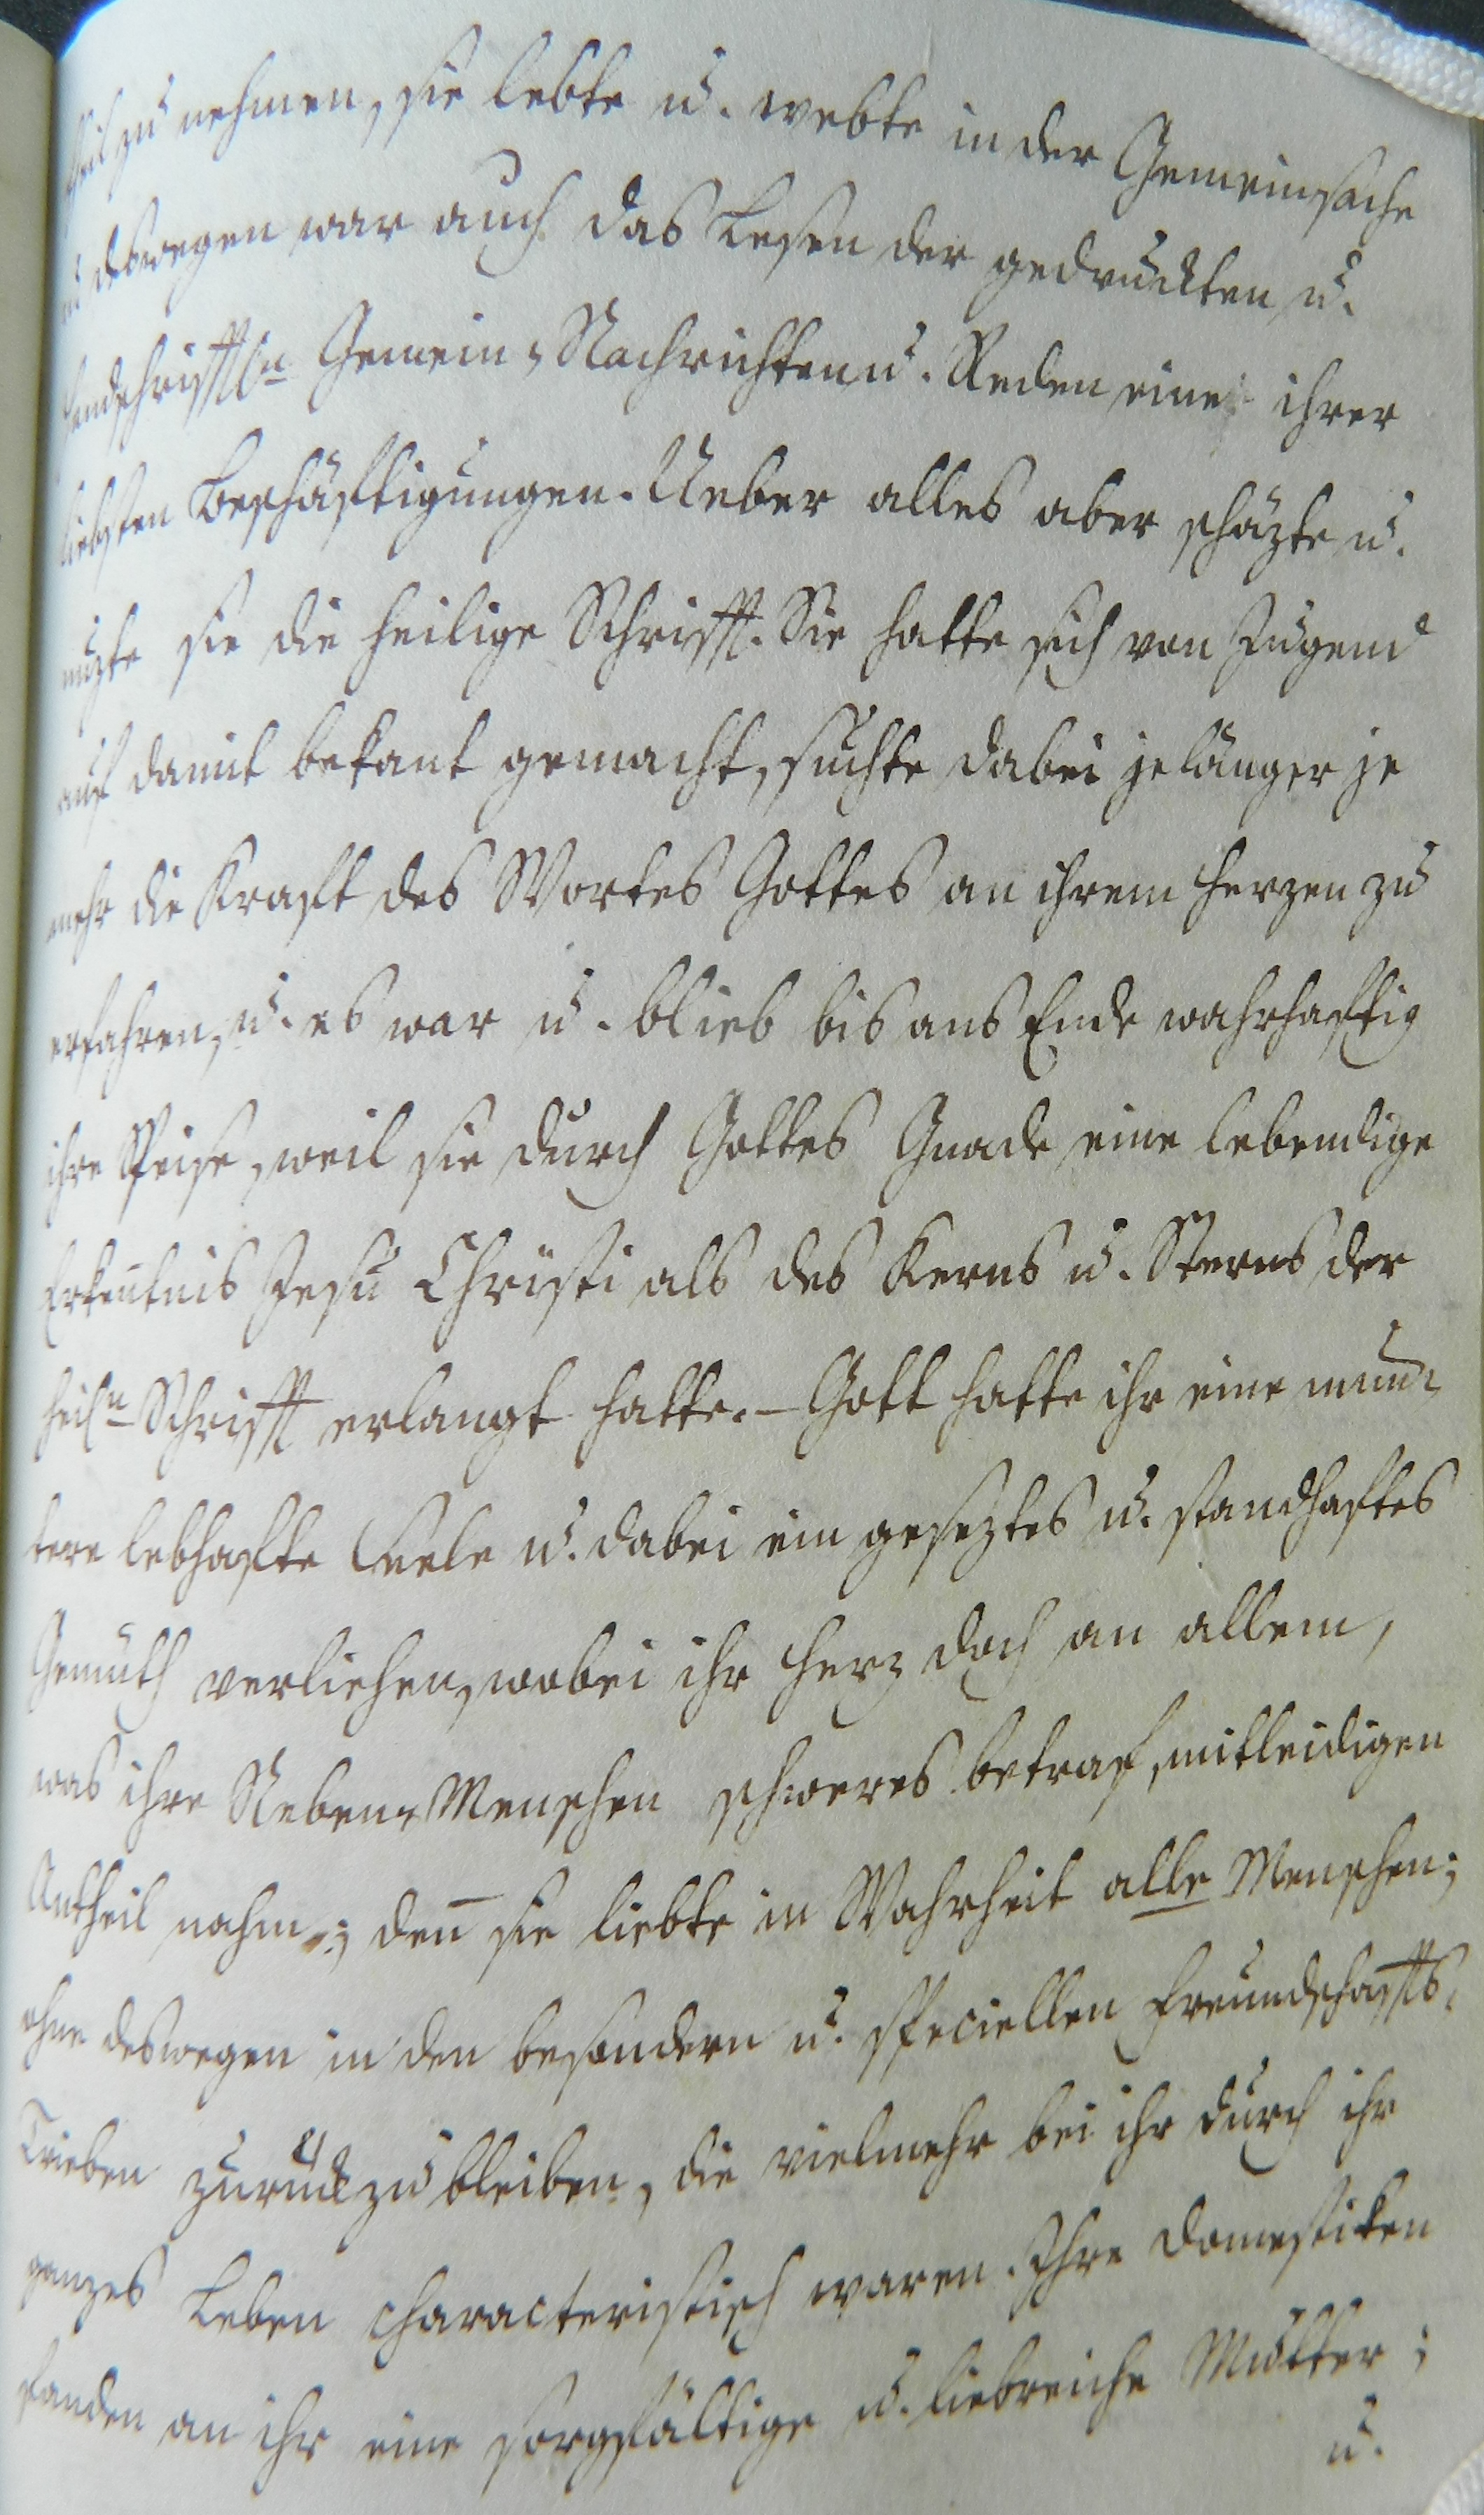 theil zu nehmen, sie lebte u. webte in der Gemeinsache
u. deswegen war auch das Lesen der gedruckten u.
handschriftln Gemein-Nachrichten u. Reden eine ihrer
liebsten Beschäftigungen. Ueber alles aber schäzte u.
nuzte sie die heilige Schrifft. Sie hatte sich von Jugend
auf damit bekant gemacht, suchte dabei je länger je
mehr die Kraft des Wortes Gottes an ihrem Herzen zu
erfahren, u. es war u. blieb bis ans Ende wahrhaftig
ihre Speise, weil sie durch Gottes Gnade eine lebendige
Erkentnis Jesu Christi als des Kerns u. Sterns der
heiln Schrifft erlangt hatte. – Gott hatte ihr eine mun-
tere lebhafte Seele u. dabei ein geseztes u. standhaftes
Gemüth verliehen, wobei ihr Herz doch an allem,
was ihre Neben-Menschen schweres betraf, mitleidigen
Antheil nahm; den̄ sie liebte in Wahrheit alle Menschen;
ohne deswegen in den besondern u. speciellen Freundschaffts-
Trieben zurückzubleiben, die vielmehr bei ihr durch ihr
ganzes Leben characteristisch waren. Ihre Domestiken
fanden an ihr eine sorgfältige u. liebreiche Mutter;
u.